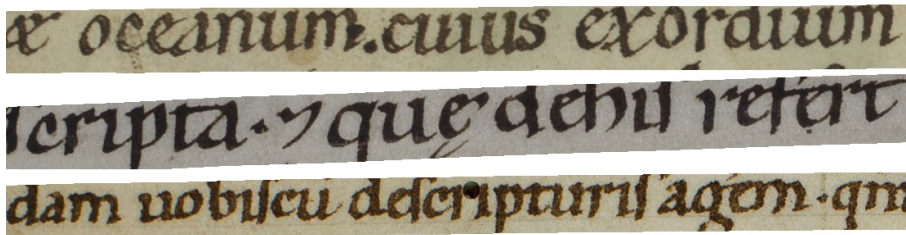 æ oceanum. cuius exordium
scripta. ⁊ quę dehis refert
dam uobiscū descripturis agem. qm